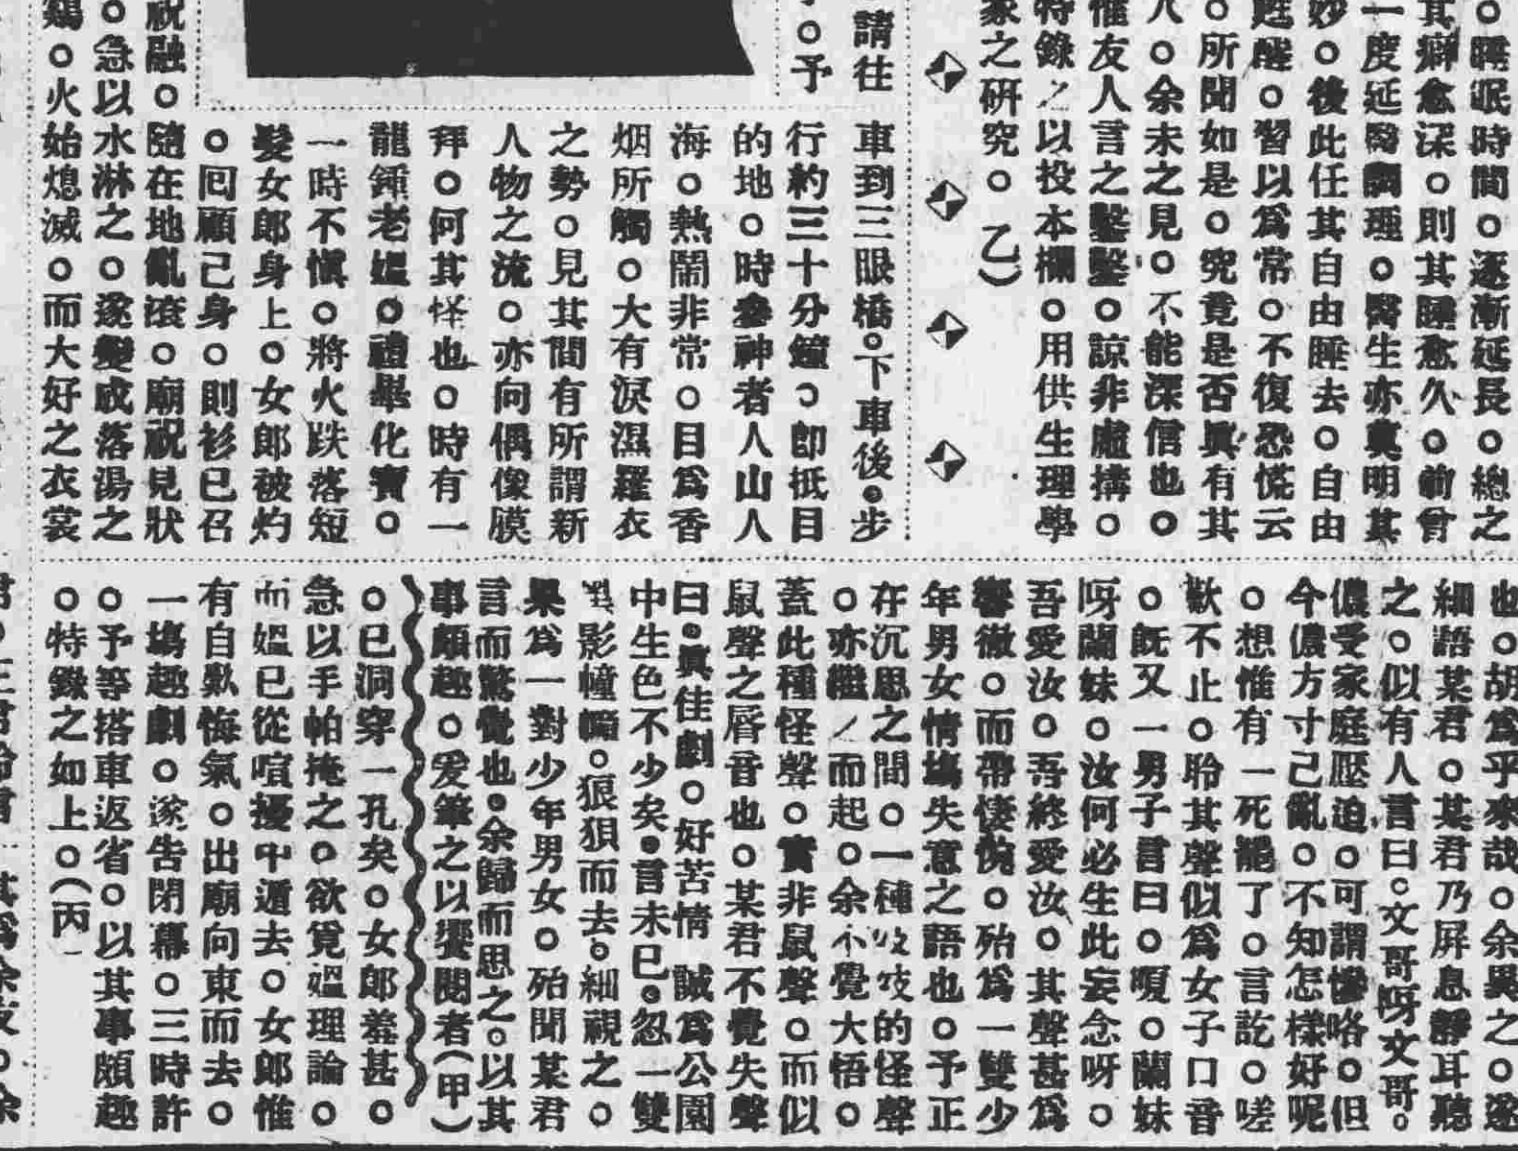 。睡眠時間。逐漸延長。總之
其癖愈深。則其睡愈久。前曾
一度延醫調理。醫生亦莫明其
妙。後此任其自由睡去。自由
甦醒。習以爲常。不復恐慌云
。所聞如是。究竟是否眞有其
人。余未之見。不能深信也。
惟友人言之鑿鑿。諒非虛搆。
特錄之以投本欄。用供生理學
家之研究。（乙）
請往
。予
車到三眼橋。下車後。步
行約三十分鐘。卽抵目
的地。時參神者人山人
海。熱鬧非常。目爲香
烟所觸。大有淚濕羅衣
之勢。見其間有所謂新
人物之流。亦向偶像膜
拜。何其怪也。時有一
龍鍾老媪。禮畢化寶。
一時不愼。將火跌落短
髮女郎身上。女郎被灼
。囘顧己身。則衫已召
祝融。隨在地亂滾。廟祝見狀
。急以水淋之。遂變成落湯之
鷄。火始熄滅。而大好之衣裳
也。胡爲乎來哉。余異之。遂
細語某君。某君乃屏息靜耳聽
之。似有人言曰。文哥呀文哥。
儂受家庭壓迫。可謂慘咯。但
今儂方寸己亂。不知怎樣好呢
。想惟有一死罷了。言訖。嗟
歎不止。聆其聲似爲女子口音
。旣又一男子言曰。嗄。蘭妹
呀蘭妹。汝何必生此妄念呀。
吾愛汝。吾終愛汝。其聲甚爲
響徹。而帶悽惋。殆爲一雙少
年男女情塲失意之語也。予正
在沉思之間。一種吱吱的怪聲
。亦繼之而起。余不覺大悟。
蓋此種怪聲。實非鼠聲。而似
鼠聲之唇音也。某君不覺失聲
曰。眞佳劇。好苦情　誠爲公園
中生色不少矣。言未已。忽一雙
黑影幢幢。狼狽而去。細視之。
果爲一對少年男女。殆聞某君
言而驚覺也。余歸而思之。以其
事頗趣。爰筆之以饗閱者（甲）
。已洞穿一孔矣。女郎羞甚。
急以手帕掩之。欲覓媪理論。
而媪已從喧擾中遁去。女郎惟
有自歎悔氣。出廟向東而去。
一塲趣劇。遂告閉幕。三時許
。予等搭車返省。以其事頗趣
。特錄之如上。（丙）